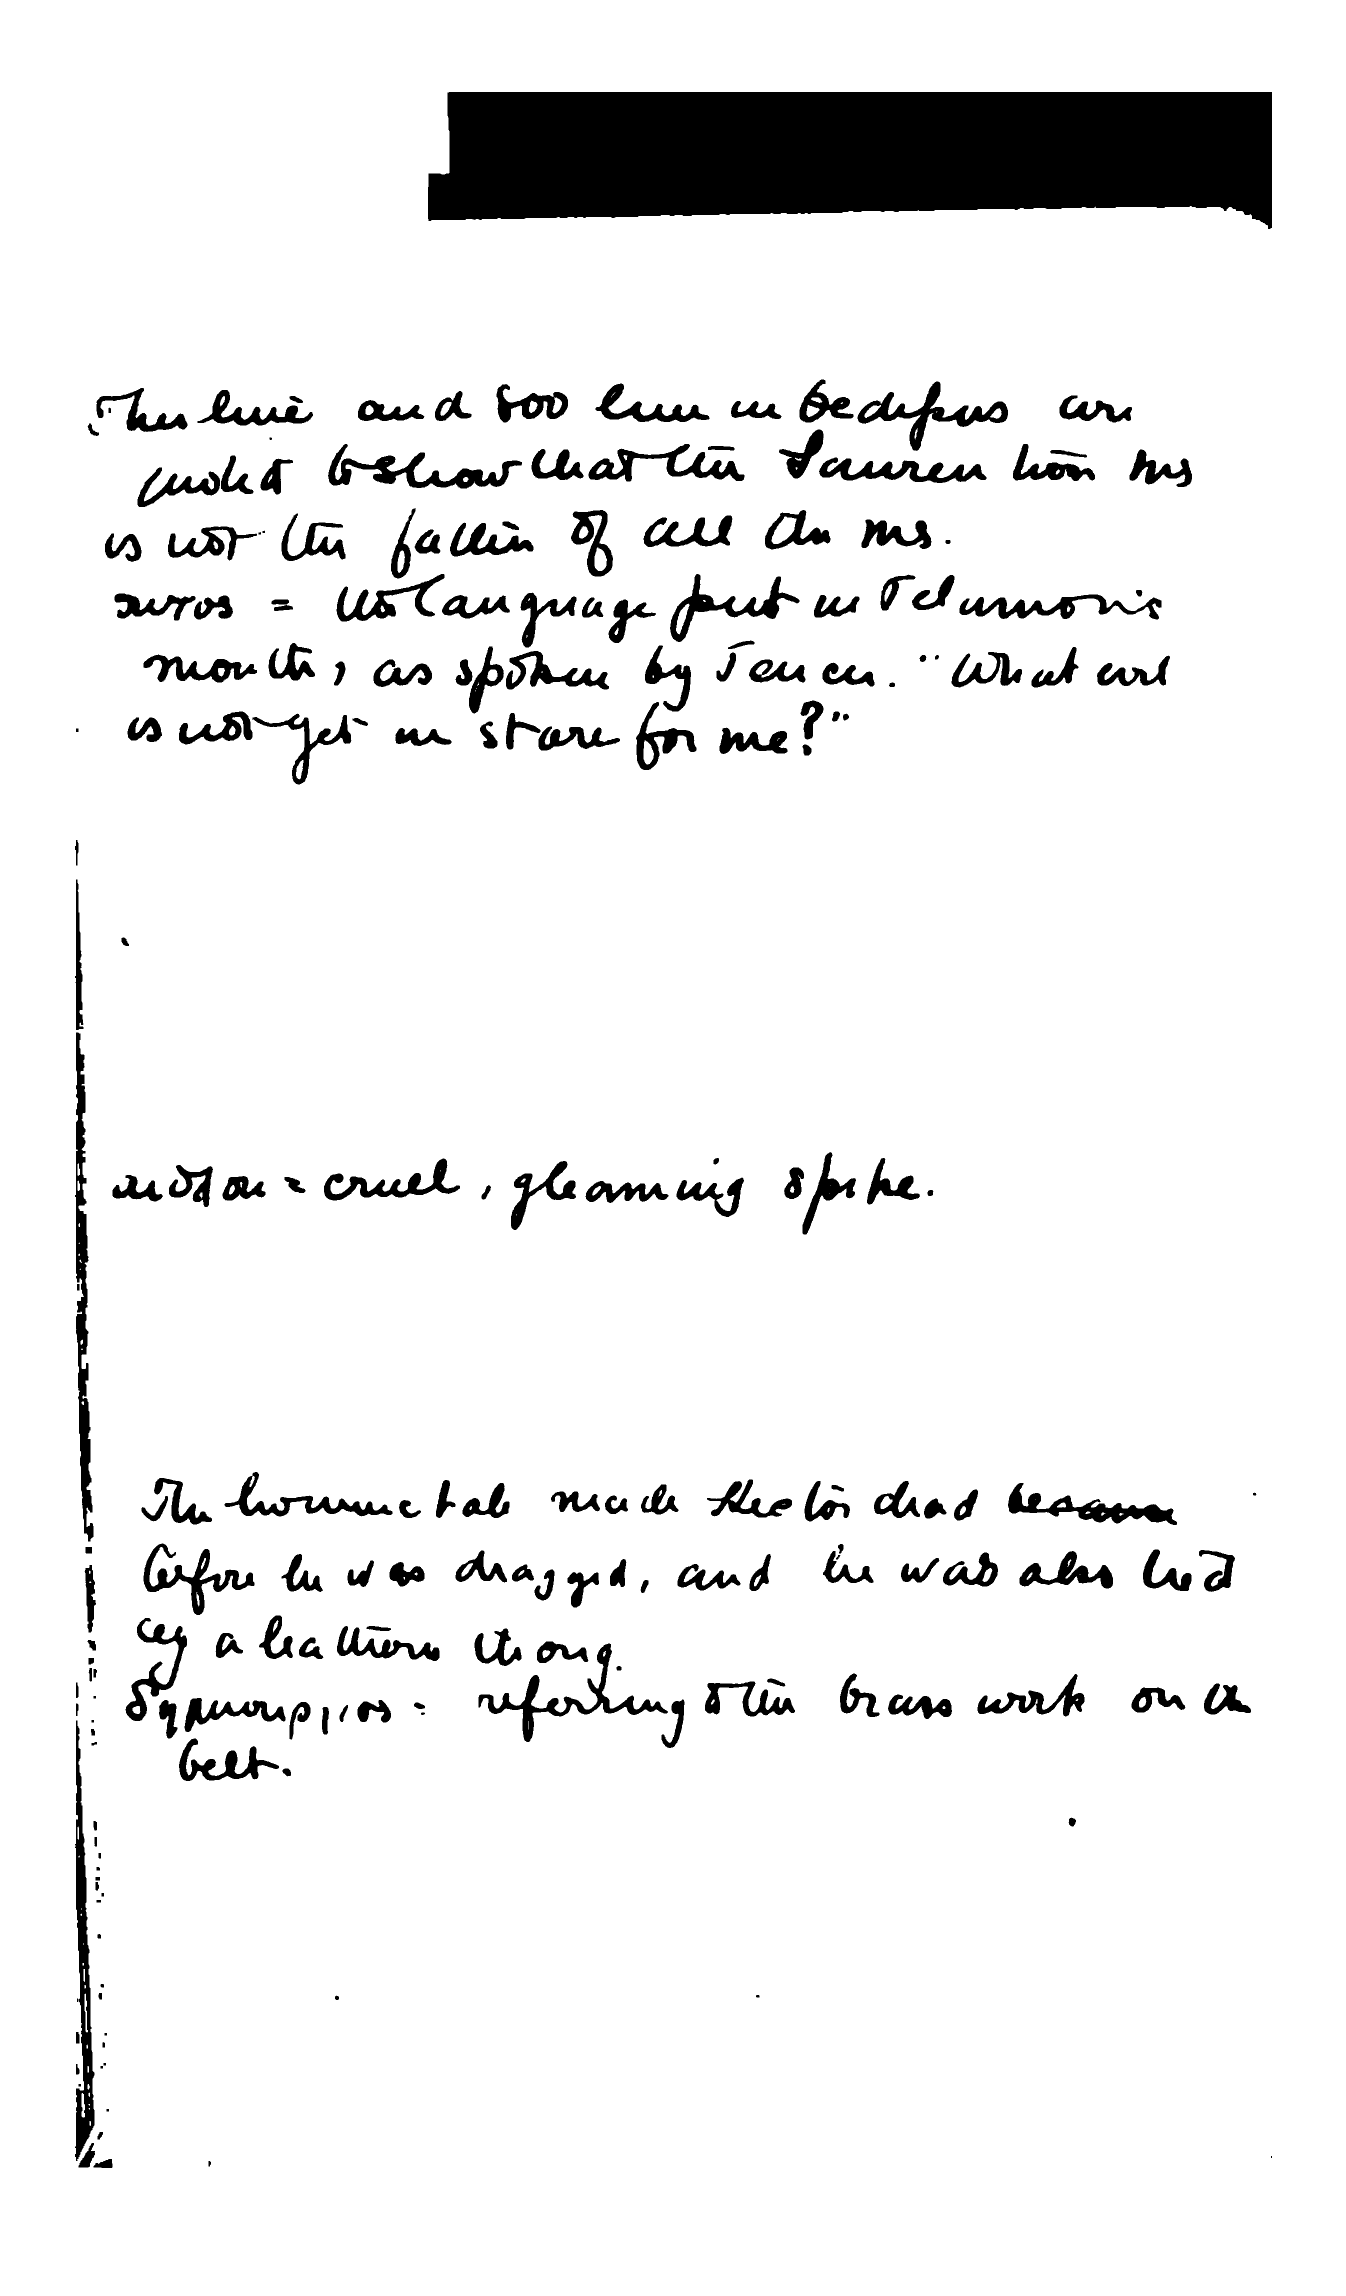 This line and 800 line in Oedipus are
quoted to show that the Laurentian ms
is not the father of all the ms.
= the language put in Telamon's
mouth, as spoken by Teucer. "What evil
is not yet in store for me?"
= cruel, gleaming spike.
The homeric tale made Hector dead
before he was dragged, and he was also tied
by a leathern thong.
= referring to the brass work on the
belt.